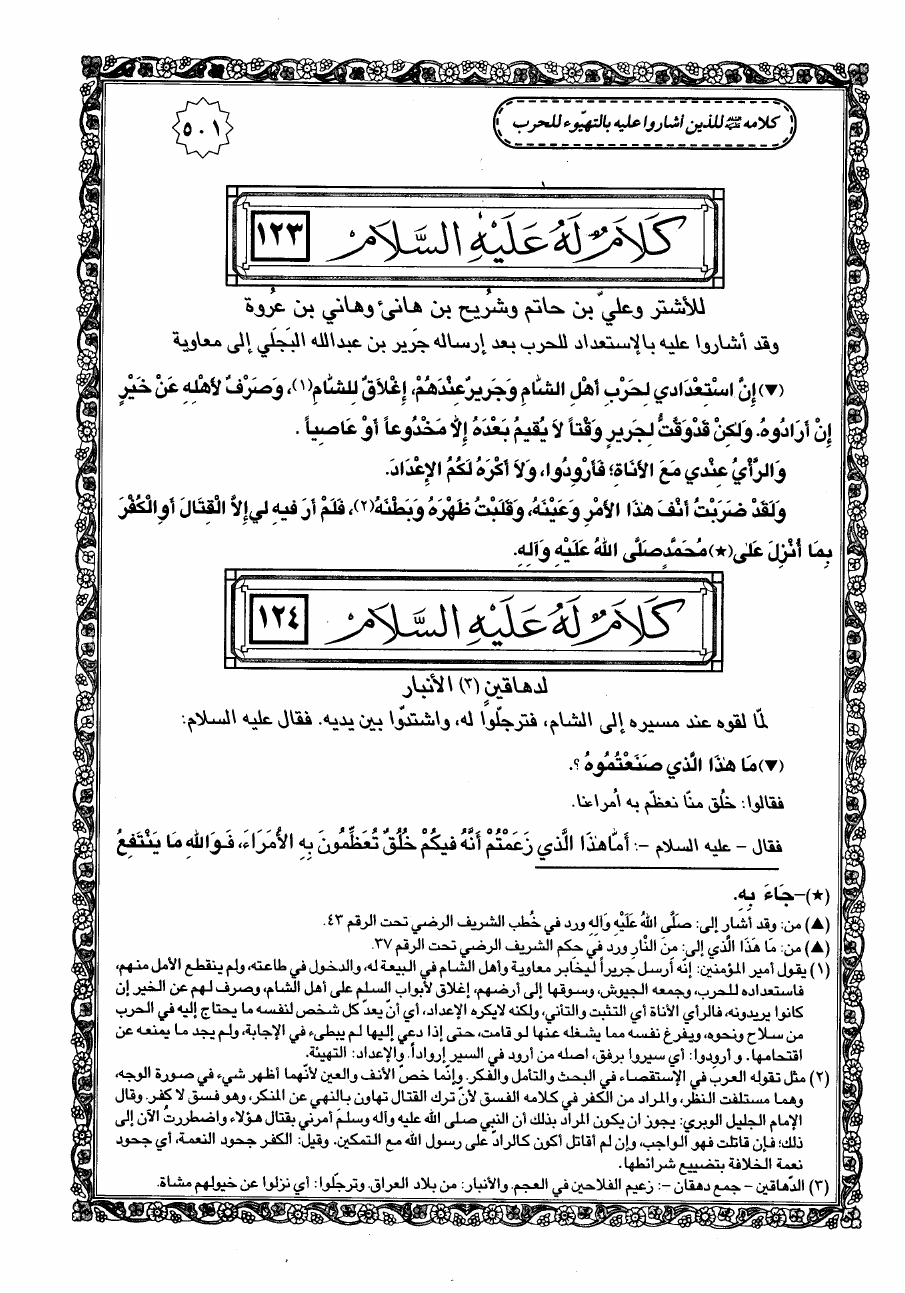 كلامه عليه السلام للذين أشاروا عليه بالتهيّوء للحرب
٥٠١
كَلَامٌ لَهُ عَلَيْهِ السَّلَامُ
١٢٣
للأشتر وعليّ بن حاتم وشُريح بن هانئ وهاني بن عُروة
وقد أشاروا عليه بالإستعداد للحرب بعد إرساله جَرير بن عبدالله البَجَلي إلى معاوية
(▼) إِنَّ اسْتِعْدَادي لِحَرْبِ أَهْلِ الشَّامِ وَجَريرٌ عِنْدَهُمْ، إِغْلَاقٌ لِلشَّامِ(١)، وَصَرْفٌ لأَهْلِهِ عَنْ خَيْرٍ
إِنْ أَرَادُوهُ. وَلكِنْ قَدْ وَقَّتُّ لِجَريرٍ وَقْتاً لَا يُقيمُ بَعْدَهُ إِلَّا مَخْدُوعاً أَوْ عَاصِياً.
وَالرَّأْيُ عِنْدي مَعَ الأَنَاةِ؛ فَأَرْوِدُوا، وَلَا أَكْرَهُ لَكُمُ الإِعْدَادَ.
وَلَقَدْ ضَرَبْتُ أَنْفَ هذَا الأَمْرِ وَعَيْنَهُ، وَقَلَّبْتُ ظَهْرَهُ وَبَطْنَهُ(٢)، فَلَمْ أَرَ فيهِ لي إِلَّا الْقِتَالَ أَوِ الْكُفْرَ
بِمَا أُنْزِلَ عَلى(★) مُحَمَّدٍ صَلَّى اللهُ عَلَيْهِ وَآلِهِ.
كَلَامٌ لَهُ عَلَيْهِ السَّلَامُ
١٢٤
لدهاقينِ (٣) الأنبار
لمّا لقوه عند مسيره إلى الشام، فترجّلوا له، واشتدّوا بين يديه. فقال عليه السلام:
(▼) مَا هذَا الَّذي صَنَعْتُمُوهُ؟.
فقالوا: خُلُق منّا نعظّم به أمراءنا.
فقال - عليه السلام -: أَمَّا هذَا الَّذي زَعَمْتُمْ أَنَّهُ فيكُمْ خُلُقٌ تُعَظِّمُونَ بِهِ الأُمَرَاءَ، فَوَاللهِ مَا يَنْتَفِعُ
(★)-جَاءَ بِهِ.
(▲) من: وقد أشار إلى: صَلَّى اللهُ عَلَيْهِ وَآلِهِ ورد في خُطب الشريف الرضي تحت الرقم ٤٣.
(▲) من: مَا هَذَا الَّذي إلى: مِنَ النَّارِ ورد في حكم الشريف الرضي تحت الرقم ٣٧.
(١) يقول أمير المؤمنين: إنّه أرسل جريراً ليخابر معاوية وأهل الشام في البيعة له، والدخول في طاعته، ولم ينقطع الأمل منهم،
فاستعداده للحرب، وجمعه الجيوش، وسوقها إلى أرضهم، إغلاق لأبواب السلم على أهل الشام، وصرف لهم عن الخير إن
كانوا يريدونه، فالرأي الأناة أي التثبت والتأني، ولكنه لا يكره الإعداد، أي أن يعدّ كل شخص لنفسه ما يحتاج إليه في الحرب
من سلاح ونحوه، ويفرغ نفسه مما يشغله عنها لو قامت، حتى إذا دعي إليها لم يبطىء في الإجابة، ولم يجد ما يمنعه عن
اقتحامها. و أرودوا: أي سيروا برفق، اصله من أرود في السير إرواداً. والإعداد: التهيئة.
(٢) مثل تقوله العرب في الإستقصاء في البحث والتأمل والفكر. وإنّما خصّ الأنف والعين لأنّهما أظهر شيء في صورة الوجه،
وهما مستلفت النظر، والمراد من الكفر في كلامه الفسق لأنّ ترك القتال تهاون بالنهي عن المنكر، وهو فسق لا كفر. وقال
الإمام الجليل الوبري: يجوز أن يكون المراد بذلك أن النبي صلى الله عليه وآله وسلم أمرني بقتال هؤلاء واضطررتُ الآن إلى
ذلك؛ فإن قاتلت فهو الواجب، وإن لم أقاتل أكون كالرادّ على رسول الله مع التمكين. وقيل: الكفر جحود النعمة، أي جحود
نعمة الخلافة بتضييع شرائطها.
(٣) الدّهاقين - جمع دهقان -: زعيم الفلاحين في العجم. والأنبار: من بلاد العراق. وترجّلوا: أي نزلوا عن خيولهم مشاة.